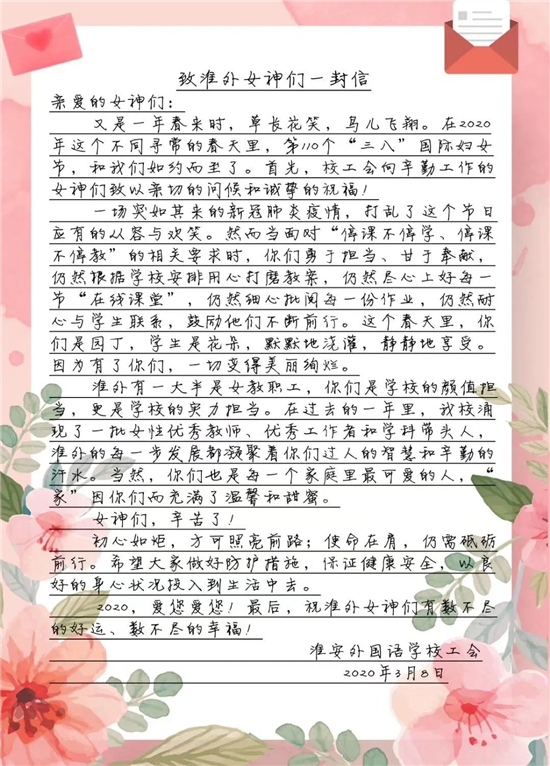 致淮外女神们一封信
亲爱的女神们：
又是一年春来时，草长花笑，鸟儿飞翔。在2020
年这个不同寻常的春天里，第110个“三八”国际妇女
节，和我们如约而至了。首先，校工会向辛勤工作的
女神们致以亲切的问候和诚挚的祝福！
一场突如其来的新冠肺炎疫情，打乱了这个节日
应有的从容与欢笑。然而当面对“停课不停学、停课
不停教”的相关要求时，你们勇于担当、甘于奉献，
仍然根据学校安排用心打磨教案，仍然尽心上好每一
节“在线课堂”，仍然细心批阅每一份作业，仍然耐
心与学生联系，鼓励他们不断前行。这个春天里，你
们是园丁，学生是花朵，默默地浇灌，静静地享受。
因为有了你们，一切变得美丽绚烂。
淮外有一大半是女教职工，你们是学校的颜值担
当，更是学校的实力担当。在过去的一年里，我校涌
现了一批女性优秀教师、优秀工作者和学科带头人，
淮外的每一步发展都凝聚着你们过人的智慧和辛勤的
汗水。当然，你们也是每一个家庭里最可爱的人，“
家”因你们而充满了温馨和甜蜜。
女神们，辛苦了！
初心如炬，方可照亮前路；使命在肩，仍需砥砺
前行。希望大家做好防护措施，保证健康安全，以良
好的身心状况投入到生活中去。
2020，爱您爱您！最后，祝淮外女神们有数不尽
的好运、数不尽的幸福！
淮安外国语学校工会
2020年3月8日